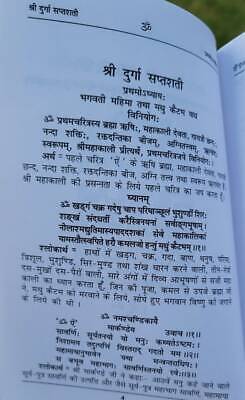 श्री दुर्गा सप्तशती
ॐ
श्री दुर्गा सप्तशती
प्रथमोऽध्यायः
भगवती महिमा तथा मधु कैटभ वध
विनियोगः
ॐ प्रथमचरित्रस्य ब्रह्मा ऋषिः, महाकाली देवता, गायत्री छन्दः,
नन्दा शक्तिः, रक्तदन्तिका बीजम्, अग्निस्तत्त्वम्,
स्वरूपम्, श्रीमहाकाली प्रीत्यर्थे, प्रथमचरित्रजपे विनियोगः।
अर्थ - पहले चरित्र के ब्रह्मा ऋषि, महाकाली देवता, गायत्री
छन्द, नन्दा शक्ति, रक्तदन्तिका बीज, अग्नि तत्व तथा स्वरूप ऋग्वेद है
श्री महाकाली की प्रसन्नता के लिये पहले चरित्र का जप करता हूँ
ध्यानम्
ॐ खड्गं चक्र गदेषु चाप परिघाञ्छूलं भुशुण्डीं शिरः
शङ्खं संदधतीं करैस्त्रिनयनां सर्वाङ्गभूषावृताम्।
नीलाश्मद्युतिमास्यपाददशकां सेवे महाकालिकां
यामस्तौत्स्वपिते हरौ कमलजो हन्तुं मधुं कैटभम्॥१॥
श्लोकार्थ = हाथों में खड्ग, चक्र, गदा, बाण, धनुष, परिघ,
त्रिशूल, भुशुण्डि, सिर-मुण्ड तथा शंख धारण करने वाली, तीन-नेत्रों
दस-मुखों दस-पैरों वाली, सारे अंगों में दिव्य आभूषणों से सजी महा
काली का ध्यान करता हूँ, जिन की पूजा, कमल से उत्पन्न ब्रह्मा जी
ने, मधु कैटभ को मरवाने के लिये, सोये हुए भगवान विष्णु को जगाने
के लिये की थी।
ॐ नमश्चण्डिकायै
"ॐ ऐं" मार्कण्डेय उवाच॥१॥
सावर्णिः सूर्यतनयो यो मनुः कथ्यतेऽष्टमः।
निशामय तदुत्पत्तिं विस्तराद् गदतो मम॥२॥
महामायानुभावेन यथा मन्वन्तराधिपः।
स बभूव महाभागः सावर्णिस्तनयो रवेः॥३॥
श्लोकार्थ = मार्कण्डेय जी ने कहा- आठवें मनु कहे जाने वाले
सूर्य-पुत्र सावर्णि की उत्पत्ति और जैसे सूर्य-पुत्र महाभाग सावर्णि, महामाया